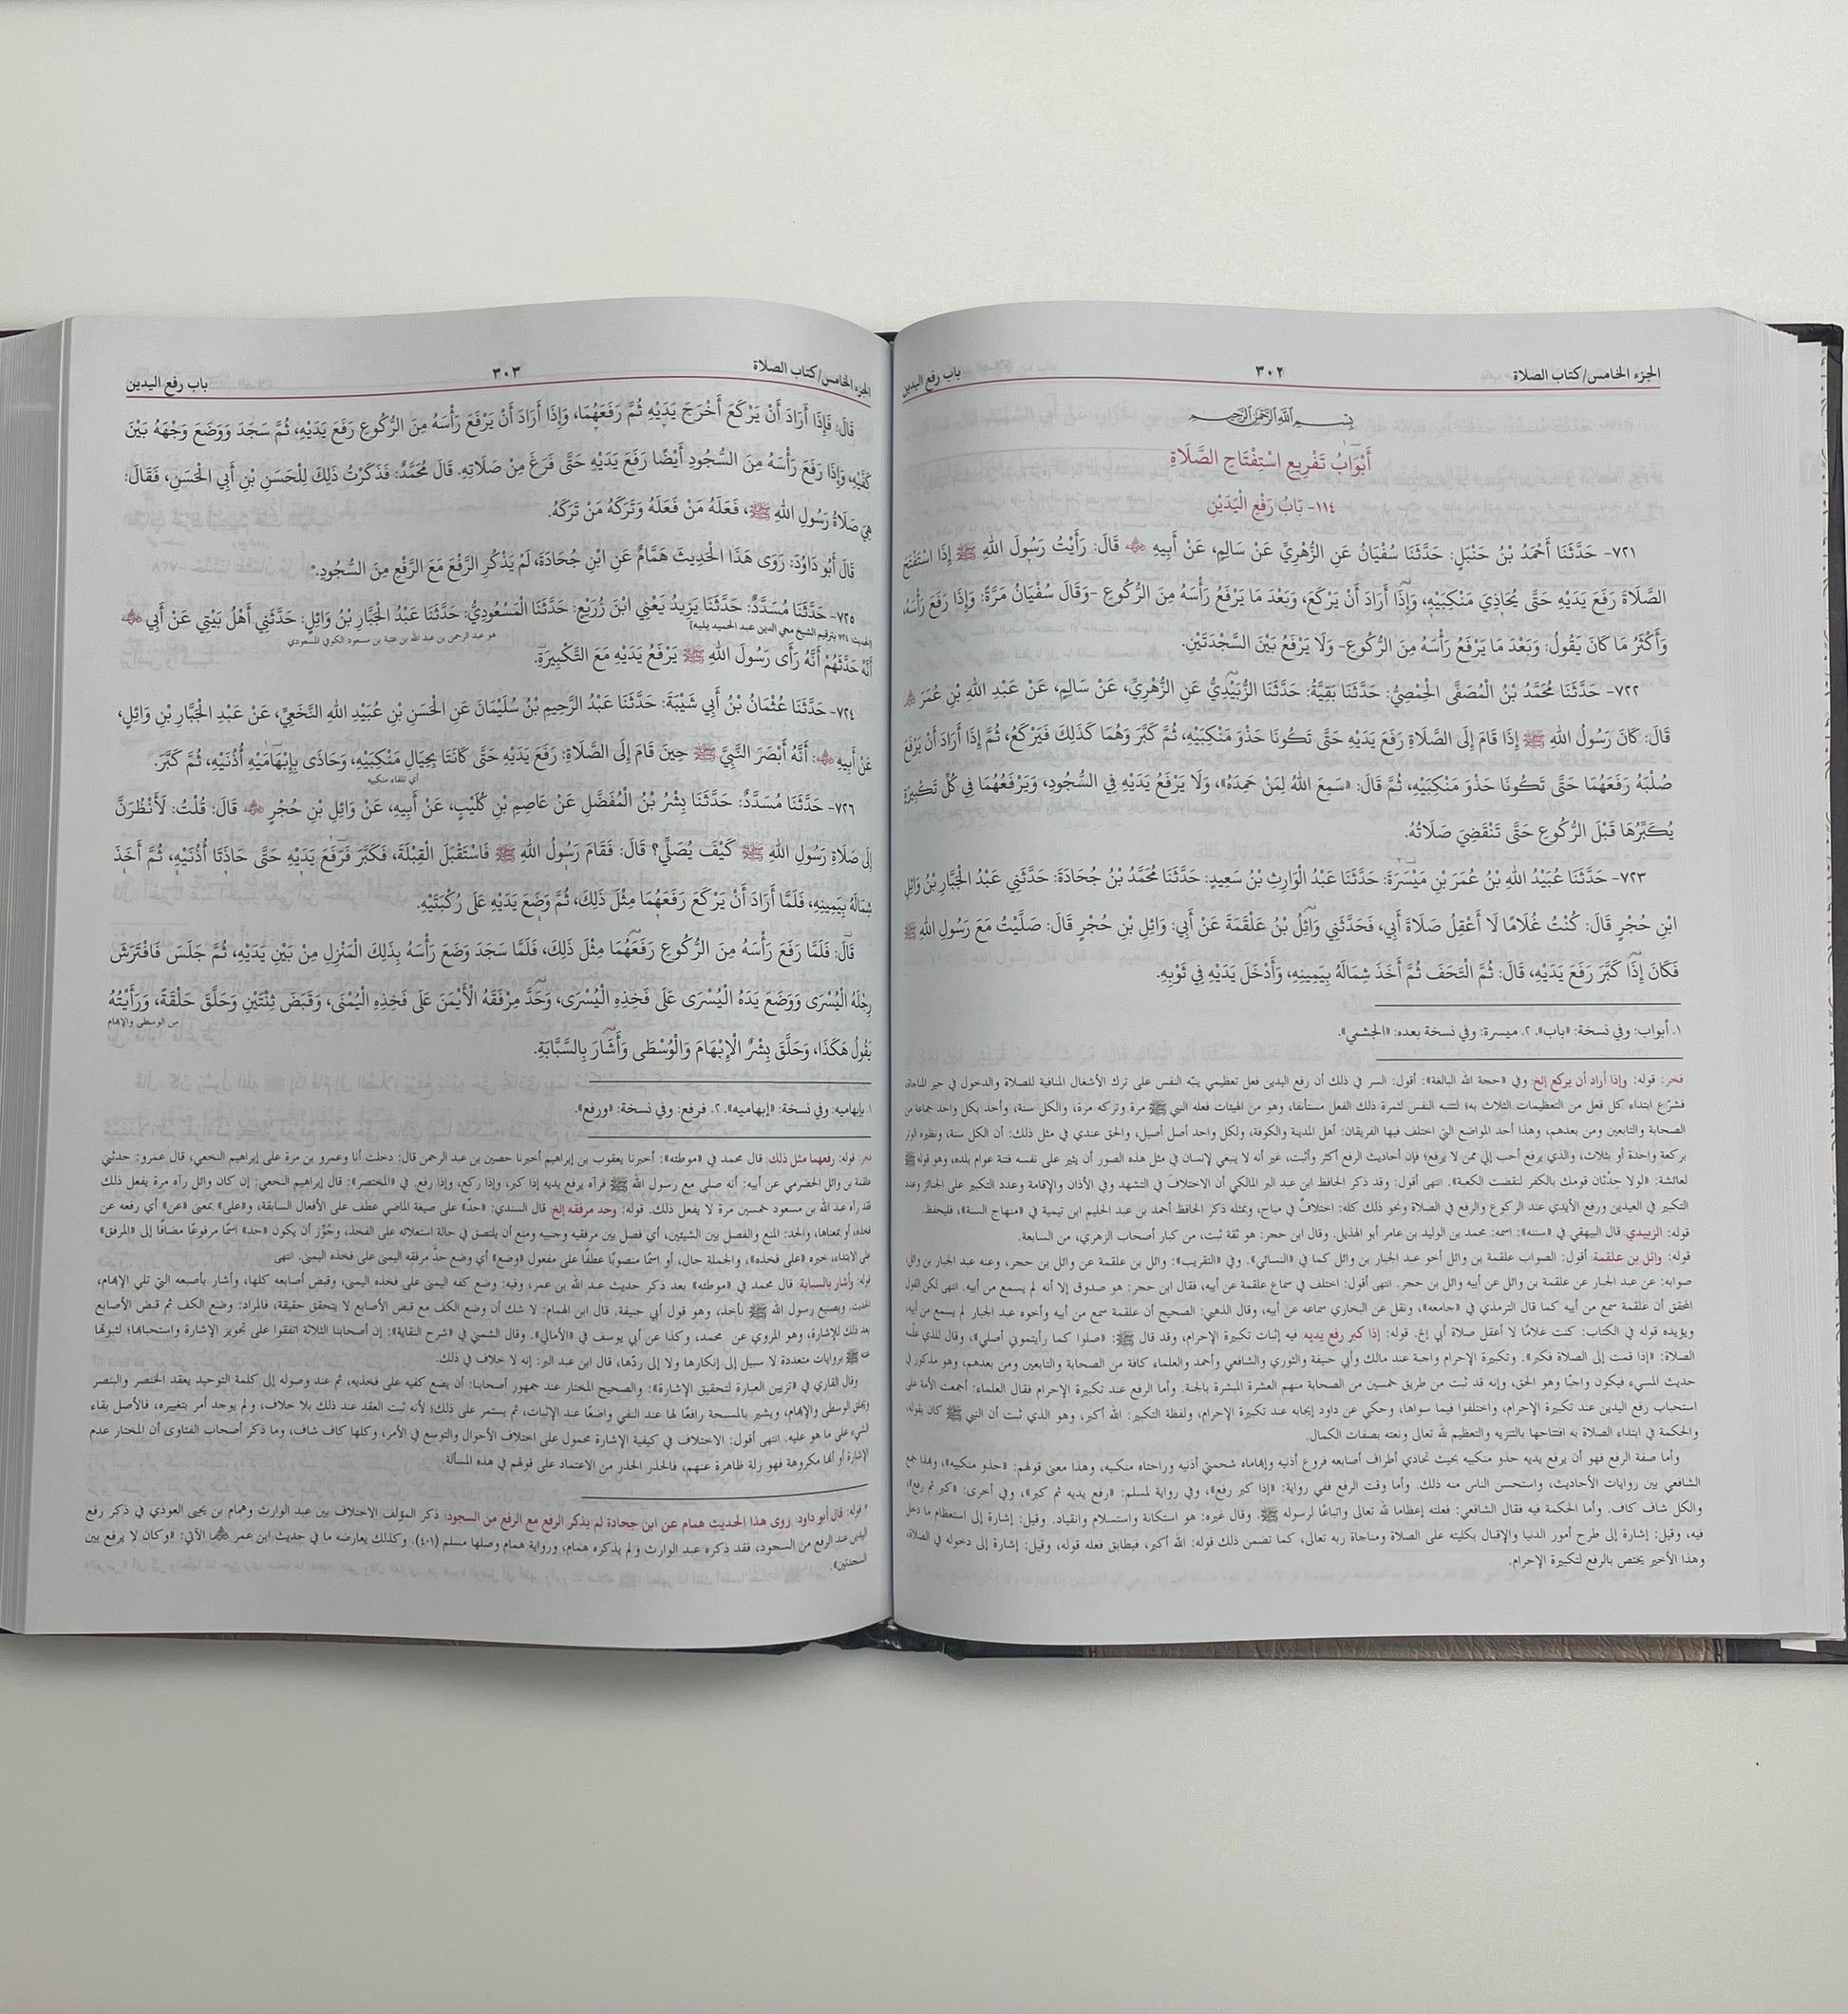 الجزء الخامس/كتاب الصلاة ٣٠٢ باب رفع اليدين
بِسْمِ اللهِ الرَّحْمَنِ الرَّحِيمِ
أَبْوَابُ تَفْرِيعِ اسْتِفْتَاحِ الصَّلَاةِ
١١٤- بَابُ رَفْعِ الْيَدَيْنِ
٧٢١- حَدَّثَنَا أَحْمَدُ بْنُ حَنْبَلٍ: حَدَّثَنَا سُفْيَانُ عَنِ الزُّهْرِيِّ عَنْ سَالِمٍ، عَنْ أَبِيهِ ﷺ قَالَ: رَأَيْتُ رَسُولَ اللهِ ﷺ إِذَا اسْتَفْتَحَ
الصَّلَاةَ رَفَعَ يَدَيْهِ حَتَّى يُحَاذِيَ مَنْكِبَيْهِ، وَإِذَا أَرَادَ أَنْ يَرْكَعَ، وَبَعْدَ مَا يَرْفَعُ رَأْسَهُ مِنَ الرُّكُوعِ -وَقَالَ سُفْيَانُ مَرَّةً: وَإِذَا رَفَعَ رَأْسَهُ،
وَأَكْثَرُ مَا كَانَ يَقُولُ: وَبَعْدَ مَا يَرْفَعُ رَأْسَهُ مِنَ الرُّكُوعِ- وَلَا يَرْفَعُ بَيْنَ السَّجْدَتَيْنِ.
٧٢٢- حَدَّثَنَا مُحَمَّدُ بْنُ الْمُصَفَّى الْحِمْصِيُّ: حَدَّثَنَا بَقِيَّةُ: حَدَّثَنَا الزُّبَيْدِيُّ عَنِ الزُّهْرِيِّ، عَنْ سَالِمٍ، عَنْ عَبْدِ اللهِ بْنِ عُمَرَ
قَالَ: كَانَ رَسُولُ اللهِ ﷺ إِذَا قَامَ إِلَى الصَّلَاةِ رَفَعَ يَدَيْهِ حَتَّى تَكُونَا حَذْوَ مَنْكِبَيْهِ، ثُمَّ كَبَّرَ وَهُمَا كَذَلِكَ فَيَرْكَعُ، ثُمَّ إِذَا أَرَادَ أَنْ يَرْفَعَ
صُلْبَهُ رَفَعَهُمَا حَتَّى تَكُونَا حَذْوَ مَنْكِبَيْهِ، ثُمَّ قَالَ: «سَمِعَ اللهُ لِمَنْ حَمِدَهُ»، وَلَا يَرْفَعُ يَدَيْهِ فِي السُّجُودِ، وَيَرْفَعُهُمَا فِي كُلِّ تَكْبِيرَةٍ
يُكَبِّرُهَا قَبْلَ الرُّكُوعِ حَتَّى تَنْقَضِيَ صَلَاتُهُ.
٧٢٣- حَدَّثَنَا عُبَيْدُ اللهِ بْنُ عُمَرَ بْنِ مَيْسَرَةَ: حَدَّثَنَا عَبْدُ الْوَارِثِ بْنُ سَعِيدٍ: حَدَّثَنَا مُحَمَّدُ بْنُ جُحَادَةَ: حَدَّثَنِي عَبْدُ الْجَبَّارِ بْنُ وَائِلِ
ابْنِ حُجْرٍ قَالَ: كُنْتُ غُلَامًا لَا أَعْقِلُ صَلَاةَ أَبِي، فَحَدَّثَنِي وَائِلُ بْنُ عَلْقَمَةَ عَنْ أَبِي: وَائِلِ بْنِ حُجْرٍ قَالَ: صَلَّيْتُ مَعَ رَسُولِ اللهِ ﷺ
فَكَانَ إِذَا كَبَّرَ رَفَعَ يَدَيْهِ، قَالَ: ثُمَّ الْتَحَفَ ثُمَّ أَخَذَ شِمَالَهُ بِيَمِينِهِ، وَأَدْخَلَ يَدَيْهِ فِي ثَوْبِهِ.
١. أبواب: وفي نسخة: «باب». ٢. ميسرة: وفي نسخة بعده: «الجشمي».
قوله: وإذا أراد أن يركع إلخ وفي «حجة الله البالغة»: أقول: السر في ذلك أن رفع اليدين فعل تعظيمي ينبّه النفس على ترك الأشغال المنافية للصلاة والدخول في حيز المناجاة،
فشرّع ابتداء كل فعل من التعظيمات الثلاث به؛ لتتنبه النفس لثمرة ذلك الفعل مستأنفا، وهو من الهيئات فعله النبي ﷺ مرة وتركه مرة، والكل سنة، وأخذ بكل واحد جماعة من
الصحابة والتابعين ومن بعدهم، وهذا أحد المواضع التي اختلف فيها الفريقان: أهل المدينة والكوفة، ولكل واحد أصل أصيل، والحق عندي في مثل ذلك: أن الكل سنة، ونظيره الوتر
بركعة واحدة أو بثلاث، والذي يرفع أحب إلي ممن لا يرفع؛ فإن أحاديث الرفع أكثر وأثبت، غير أنه لا ينبغي لإنسان في مثل هذه الصور أن يثير على نفسه فتنة عوام بلده، وهو قوله ﷺ
لعائشة: «لولا حِدْثان قومك بالكفر لنقضت الكعبة». انتهى أقول: وقد ذكر الحافظ ابن عبد البر المالكي أن الاختلاف في التشهد وفي الأذان والإقامة وعدد التكبير على الجنائز وعدد
التكبير في العيدين ورفع الأيدي عند الركوع والرفع في الصلاة ونحو ذلك كله: اختلافٌ في مباح، وبمثله ذكر الحافظ أحمد بن عبد الحليم ابن تيمية في «منهاج السنة»، فليحفظ.
قوله: الزبيدي قال البيهقي في «سننه»: اسمه: محمد بن الوليد بن عامر أبو الهذيل. وقال ابن حجر: هو ثقة ثبت، من كبار أصحاب الزهري، من السابعة.
قوله: وائل بن علقمة أقول: الصواب علقمة بن وائل أخو عبد الجبار بن وائل كما في «النسائي». وفي «التقريب»: وائل بن علقمة عن وائل بن حجر، وعنه عبد الجبار بن وائل
صوابه: عن عبد الجبار عن علقمة بن وائل عن أبيه وائل بن حجر. انتهى أقول: اختلف في سماع علقمة عن أبيه، فقال ابن حجر: هو صدوق إلا أنه لم يسمع من أبيه. انتهى لكن القول
المحقق أن علقمة سمع من أبيه كما قال الترمذي في «جامعه»، ونقل عن البخاري سماعه عن أبيه، وقال الذهبي: الصحيح أن علقمة سمع من أبيه وأخوه عبد الجبار لم يسمع من أبيه،
ويؤيده قوله في الكتاب: كنت غلامًا لا أعقل صلاة أبي إلخ. قوله: إذا كبر رفع يديه فيه إثبات تكبيرة الإحرام، وقد قال ﷺ: «صلوا كما رأيتموني أصلي»، وقال للذي علّمه
الصلاة: «إذا قمت إلى الصلاة فكبر». وتكبيرة الإحرام واجبة عند مالك وأبي حنيفة والثوري والشافعي وأحمد والعلماء كافة من الصحابة والتابعين ومن بعدهم، وهو مذكور في
حديث المسيء فيكون واجبًا وهو الحق، وإنه قد ثبت من طريق خمسين من الصحابة منهم العشرة المبشرة بالجنة. وأما الرفع عند تكبيرة الإحرام فقال العلماء: أجمعت الأمة على
استحباب رفع اليدين عند تكبيرة الإحرام، واختلفوا فيما سواها، وحكي عن داود إيجابه عند تكبيرة الإحرام، ولفظة التكبير: الله أكبر، وهو الذي ثبت أن النبي ﷺ كان يقوله،
والحكمة في ابتداء الصلاة به افتتاحها بالتنزيه والتعظيم لله تعالى ونعته بصفات الكمال.
وأما صفة الرفع فهو أن يرفع يديه حذو منكبيه بحيث تحاذي أطراف أصابعه فروع أذنيه وإبهاماه شحمتي أذنيه وراحتاه منكبيه، وهذا معنى قولهم: «حذو منكبيه»، وبهذا جمع
الشافعي بين روايات الأحاديث، واستحسن الناس منه ذلك. وأما وقت الرفع ففي رواية: «إذا كبر رفع»، وفي رواية لمسلم: «رفع يديه ثم كبر»، وفي أخرى: «كبر ثم رفع»،
والكل شاف كاف. وأما الحكمة فيه فقال الشافعي: فعلته إعظاما لله تعالى واتباعًا لرسوله ﷺ. وقال غيره: هو استكانة واستسلام وانقياد. وقيل: إشارة إلى استعظام ما دخل
فيه، وقيل: إشارة إلى طرح أمور الدنيا والإقبال بكليته على الصلاة ومناجاة ربه تعالى، كما تضمن ذلك قوله: الله أكبر، فيطابق فعله قوله، وقيل: إشارة إلى دخوله في الصلاة،
وهذا الأخير يختص بالرفع لتكبيرة الإحرام.
الجزء الخامس/كتاب الصلاة ٣٠٣ باب رفع اليدين
قَالَ: فَإِذَا أَرَادَ أَنْ يَرْكَعَ أَخْرَجَ يَدَيْهِ ثُمَّ رَفَعَهُمَا، وَإِذَا أَرَادَ أَنْ يَرْفَعَ رَأْسَهُ مِنَ الرُّكُوعِ رَفَعَ يَدَيْهِ، ثُمَّ سَجَدَ وَوَضَعَ وَجْهَهُ بَيْنَ
كَفَّيْهِ، وَإِذَا رَفَعَ رَأْسَهُ مِنَ السُّجُودِ أَيْضًا رَفَعَ يَدَيْهِ حَتَّى فَرَغَ مِنْ صَلَاتِهِ. قَالَ مُحَمَّدٌ: فَذَكَرْتُ ذَلِكَ لِلْحَسَنِ بْنِ أَبِي الْحَسَنِ، فَقَالَ:
هِيَ صَلَاةُ رَسُولِ اللهِ ﷺ، فَعَلَهُ مَنْ فَعَلَهُ وَتَرَكَهُ مَنْ تَرَكَهُ.
قَالَ أَبُو دَاوُدَ: رَوَى هَذَا الْحَدِيثَ هَمَّامٌ عَنِ ابْنِ جُحَادَةَ، لَمْ يَذْكُرِ الرَّفْعَ مَعَ الرَّفْعِ مِنَ السُّجُودِ.*
٧٢٥- حَدَّثَنَا مُسَدَّدٌ: حَدَّثَنَا يَزِيدُ يَعْنِي ابْنَ زُرَيْعٍ: حَدَّثَنَا الْمَسْعُودِيُّ: حَدَّثَنَا عَبْدُ الْجَبَّارِ بْنُ وَائِلٍ: حَدَّثَنِي أَهْلُ بَيْتِي عَنْ أَبِي
[الحديث: ٧٢٤ بترقيم الشيخ محي الدين عبد الحميد يليه] هو عبد الرحمن بن عبد الله بن عتبة بن مسعود الكوفي المسعودي
أَنَّهُ حَدَّثَهُمْ أَنَّهُ رَأَى رَسُولَ اللهِ ﷺ يَرْفَعُ يَدَيْهِ مَعَ التَّكْبِيرَةِ.
٧٢٤- حَدَّثَنَا عُثْمَانُ بْنُ أَبِي شَيْبَةَ: حَدَّثَنَا عَبْدُ الرَّحِيمِ بْنُ سُلَيْمَانَ عَنِ الْحَسَنِ بْنِ عُبَيْدِ اللهِ النَّخَعِيِّ، عَنْ عَبْدِ الْجَبَّارِ بْنِ وَائِلٍ،
عَنْ أَبِيهِ: أَنَّهُ أَبْصَرَ النَّبِيَّ ﷺ حِينَ قَامَ إِلَى الصَّلَاةِ: رَفَعَ يَدَيْهِ حَتَّى كَانَتَا بِحِيَالِ مَنْكِبَيْهِ، وَحَاذَى بِإِبْهَامَيْهِ أُذُنَيْهِ، ثُمَّ كَبَّرَ.
أي تلقاء منكبيه
٧٢٦- حَدَّثَنَا مُسَدَّدٌ: حَدَّثَنَا بِشْرُ بْنُ الْمُفَضَّلِ عَنْ عَاصِمِ بْنِ كُلَيْبٍ، عَنْ أَبِيهِ، عَنْ وَائِلِ بْنِ حُجْرٍ قَالَ: قُلْتُ: لَأَنْظُرَنَّ
إِلَى صَلَاةِ رَسُولِ اللهِ ﷺ كَيْفَ يُصَلِّي؟ قَالَ: فَقَامَ رَسُولُ اللهِ ﷺ فَاسْتَقْبَلَ الْقِبْلَةَ، فَكَبَّرَ فَرَفَعَ يَدَيْهِ حَتَّى حَاذَتَا أُذُنَيْهِ، ثُمَّ أَخَذَ
شِمَالَهُ بِيَمِينِهِ، فَلَمَّا أَرَادَ أَنْ يَرْكَعَ رَفَعَهُمَا مِثْلَ ذَلِكَ، ثُمَّ وَضَعَ يَدَيْهِ عَلَى رُكْبَتَيْهِ.
قَالَ: فَلَمَّا رَفَعَ رَأْسَهُ مِنَ الرُّكُوعِ رَفَعَهُمَا مِثْلَ ذَلِكَ، فَلَمَّا سَجَدَ وَضَعَ رَأْسَهُ بِذَلِكَ الْمَنْزِلِ مِنْ بَيْنِ يَدَيْهِ، ثُمَّ جَلَسَ فَافْتَرَشَ
رِجْلَهُ الْيُسْرَى وَوَضَعَ يَدَهُ الْيُسْرَى عَلَى فَخِذِهِ الْيُسْرَى، وَحَدَّ مِرْفَقَهُ الْأَيْمَنَ عَلَى فَخِذِهِ الْيُمْنَى، وَقَبَضَ ثِنْتَيْنِ وَحَلَّقَ حَلْقَةً، وَرَأَيْتُهُ
من الوسطى والإبهام
يَقُولُ هَكَذَا، وَحَلَّقَ بِشْرٌ الْإِبْهَامَ وَالْوُسْطَى وَأَشَارَ بِالسَّبَّابَةِ.
١. بإبهاميه: وفي نسخة: «إبهاميه». ٢. فرفع: وفي نسخة: «ورفع».
قوله: رفعهما مثل ذلك: قال محمد في «موطئه»: أخبرنا يعقوب بن إبراهيم أخبرنا حصين بن عبد الرحمن قال: دخلت أنا وعمرو بن مرة على إبراهيم النخعي، قال عمرو: حدثني
علقمة بن وائل الحضرمي عن أبيه: أنه صلى مع رسول الله ﷺ فرآه يرفع يديه إذا كبر، وإذا ركع، وإذا رفع. في «المختصر»: قال إبراهيم النخعي: إن كان وائل رآه مرة يفعل ذلك
فقد رآه عبد الله بن مسعود خمسين مرة لا يفعل ذلك. قوله: وحد مرفقه إلخ قال السندي: «حدّ» على صيغة الماضي عطف على الأفعال السابقة، و«على» بمعنى «عن» أي رفعه عن
فخذه، أو بمعناها، والحد: المنع والفصل بين الشيئين، أي فصل بين مرفقيه وجنبيه ومنع أن يلتصق في حالة استعلائه على الفخذ، وجُوِّز أن يكون «حد» اسمًا مرفوعًا مضافًا إلى «المرفق»
على الابتداء، خبره «على فخذه»، والجملة حال، أو اسمًا منصوبًا عطفًا على مفعول «وضع» أي وضع حدَّ مرفقه اليمنى على فخذه اليمنى. انتهى
قوله: وأشار بالسبابة: قال محمد في «موطئه» بعد ذكر حديث عبد الله بن عمر، وفيه: وضع كفه اليمنى على فخذه اليمنى، وقبض أصابعه كلها، وأشار بأصبعه التي تلي الإبهام،
الحديث. وبصنيع رسول الله ﷺ نأخذ، وهو قول أبي حنيفة. قال ابن الهمام: لا شك أن وضع الكف مع قبض الأصابع لا يتحقق حقيقة، فالمراد: وضع الكف ثم قبض الأصابع
بعد ذلك للإشارة، وهو المروي عن محمد، وكذا عن أبي يوسف في «الأمالي». وقال الشمني في «شرح النقاية»: إن أصحابنا الثلاثة اتفقوا على تجويز الإشارة واستحبابها؛ لثبوتها
عنه ﷺ بروايات متعددة لا سبيل إلى إنكارها ولا إلى ردّها، قال ابن عبد البر: إنه لا خلاف في ذلك.
وقال القاري في «تزيين العبارة لتحقيق الإشارة»: والصحيح المختار عند جمهور أصحابنا: أن يضع كفيه على فخذيه، ثم عند وصوله إلى كلمة التوحيد يعقد الخنصر والبنصر
ويحلق الوسطى والإبهام، ويشير بالمسبحة رافعًا لها عند النفي واضعًا عند الإثبات، ثم يستمر على ذلك؛ لأنه ثبت العقد عند ذلك بلا خلاف، ولم يوجد أمر بتغييره، فالأصل بقاء
الشيء على ما هو عليه. انتهى أقول: الاختلاف في كيفية الإشارة محمول على اختلاف الأحوال والتوسع في الأمر، وكلها كاف شاف، وما ذكر أصحاب الفتاوى أن المختار عدم
الإشارة أو أنها مكروهة فهو زلة ظاهرة عنهم، فالحذر الحذر من الاعتماد على قولهم في هذه المسألة.
* قوله: قال أبو داود: روى هذا الحديث همام عن ابن جحادة لم يذكر الرفع مع الرفع من السجود: ذكر المؤلف الاختلاف بين عبد الوارث وهمام بن يحيى العوذي في ذكر رفع
اليدين عند الرفع من السجود، فقد ذكره عبد الوارث ولم يذكره همام، ورواية همام وصلها مسلم (٤٠١). وكذلك يعارضه ما في حديث ابن عمر الآتي: «وكان لا يرفع بين
السجدتين».